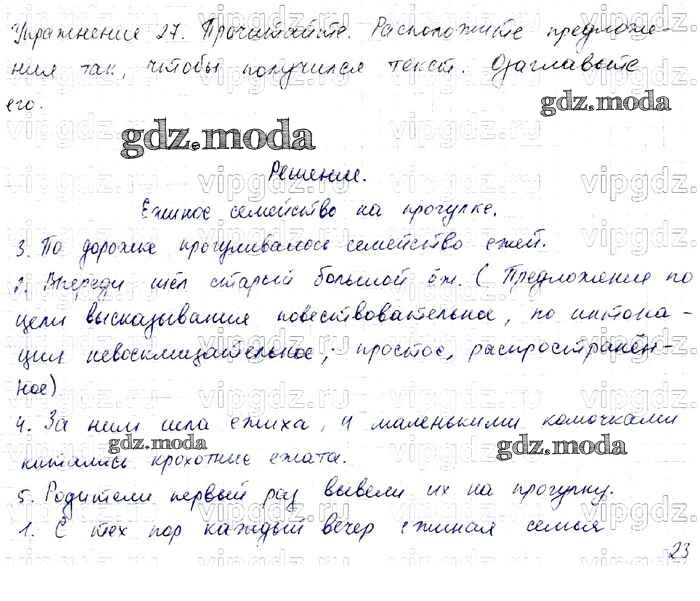 Упражнение 27. Прочитайте. Расположите предложе-
ния так, чтобы получился текст. Озаглавьте
его.
gdz.moda
Решение.
Ежиное семейство на прогулке.
3. По дорожке прогуливалось семейство ежей.
2. Впереди шёл старый большой ёж. (Предложение по
цели высказывания повествовательное, по интона-
ции невосклицательное; простое, распространён-
ное)
4. За ним шла ежиха, и маленькими комочками
катились крохотные ежата.
gdz.moda gdz.moda
5. Родители первый раз вывели их на прогулку.
1. С тех пор каждый вечер ежиная семья
23
vipgdz.ru